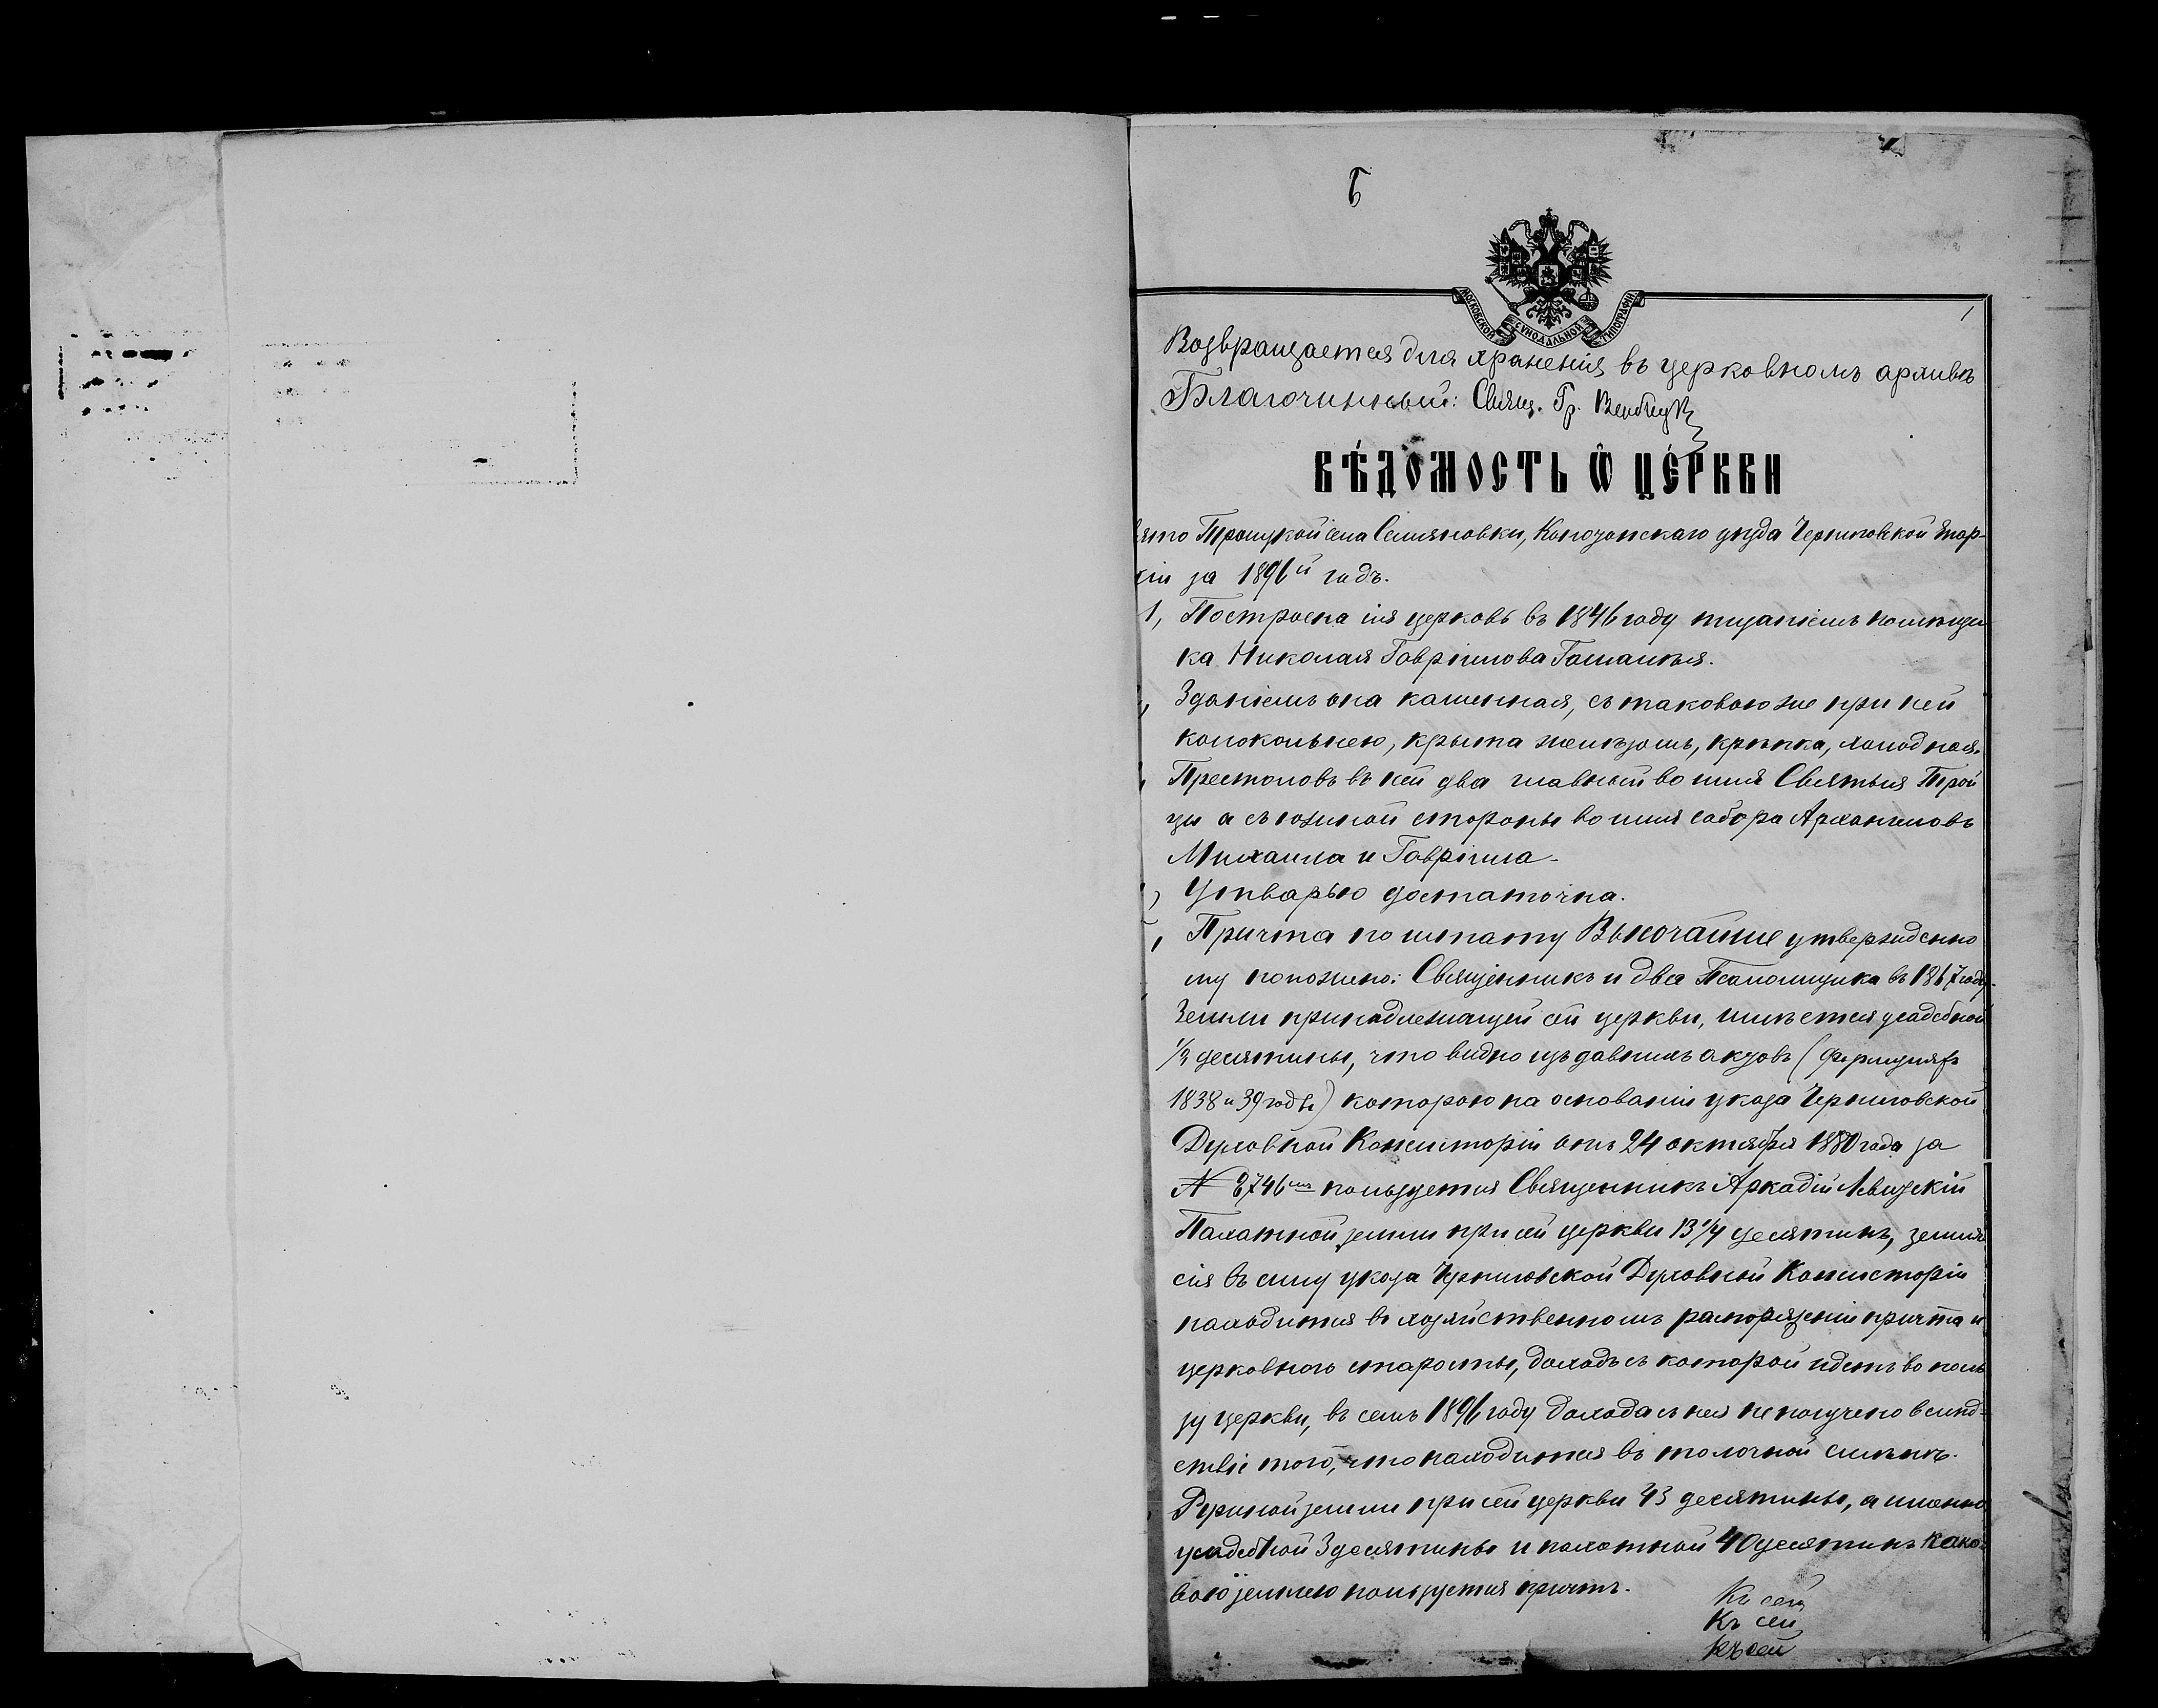 МОСКОВСКОЙ СѴНОДАЛЬНОЙ ТИПОГРАФІИ
1
Возвращается для храненія въ церковномъ архивѣ
Благочинный: Священ. Гр.
ВѢДОМОСТЬ Ѡ ЦЕРКВИ
Троицкой села Семяновки, Конотопскаго уѣзда Черниговской Епар-
хіи за 1896й годъ.
1, Построена сія церковь въ 1846 году тщаніемъ помѣщи
ка Николая Гавріилова
Зданіемъ она каменная, съ таковою же при ней
колокольнею, крыта желѣзомъ, крѣпка, холодная.
Престоловъ въ ней два главный во имя Святыя Трой
цы а съ южной стороны во имя собора Архангеловъ
Михаила и Гавріила.
Утварью достаточна.
Причта по штату Высочайше утвержденно
му положено: Священникъ и два Псаломщика въ 1867 году.
Земли принадлежащей сей церкви, имѣется усадебной
1/2 десятины, что видно изъ давнихъ актовъ (
1838 и 39 годъ) которою на основаніи указа Черниговской
Духовной Консисторіи отъ 24 октября 1880 года за
№ 8746мъ пользуется Священникъ Аркадій Левицкій
Пахатной земли при сей церкви 13 1/4 десятинъ, земля
сія въ силу указа Черниговской Духовной Консисторіи
находится въ хозяйственномъ распоряженіи причта и
церковнаго старосты, доходъ съ которой идетъ во поль
зу церкви, въ семъ 1896 году дохода съ нея не получено вслѣд-
ствіе того, что находится въ толочной смѣнѣ.
Ружной земли при сей церкви 43 десятины, а именно
усадебной 3 десятины и пахатной 40 десятинъ како-
вою землею пользуется причтъ.
Къ сей
Къ сей
Къ сей